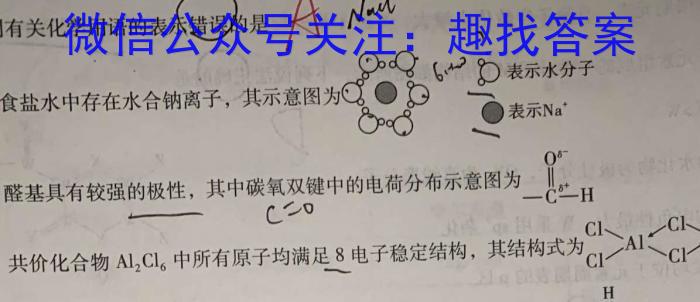 有关化学用语的表示错误的是
微信公众号关注：趣找答案
Nacl
食盐水中存在水合钠离子，其示意图为
表示水分子
表示Na⁺
醛基具有较强的极性，其中碳氧双键中的电荷分布示意图为
O^δ-
—C^δ+—H
C=O
共价化合物 Al₂Cl₆ 中所有原子均满足 8 电子稳定结构，其结构式为
Cl Cl
Al
Cl Cl
H